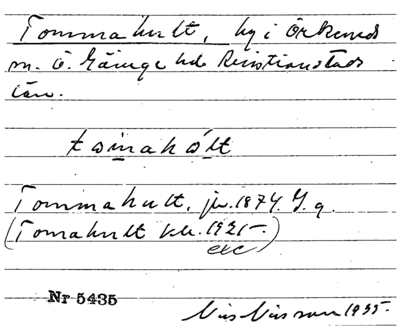 Tommahult, by i Örkened
sn. Ö. Göinge hd. Kristianstads
län.
Tommahult, jb. 1874. J. g.
(Tomahult kk. 1921–
exc)
Nr 5435
Nils Nilsson 1935.